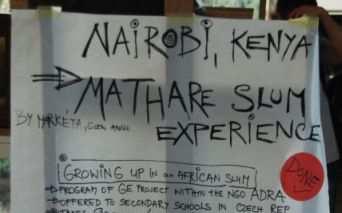 NAIROBI, KENYA
⇒ MATHARE SLUM
BY MARKÉTA,
EXPERIENCE
DONE
GROWING UP IN AN AFRICAN SLUM
→ PROGRAM OF GE PROJECT WITHIN THE NGO ADRA
→ OFFERED TO SECONDARY SCHOOLS IN CZECH REP